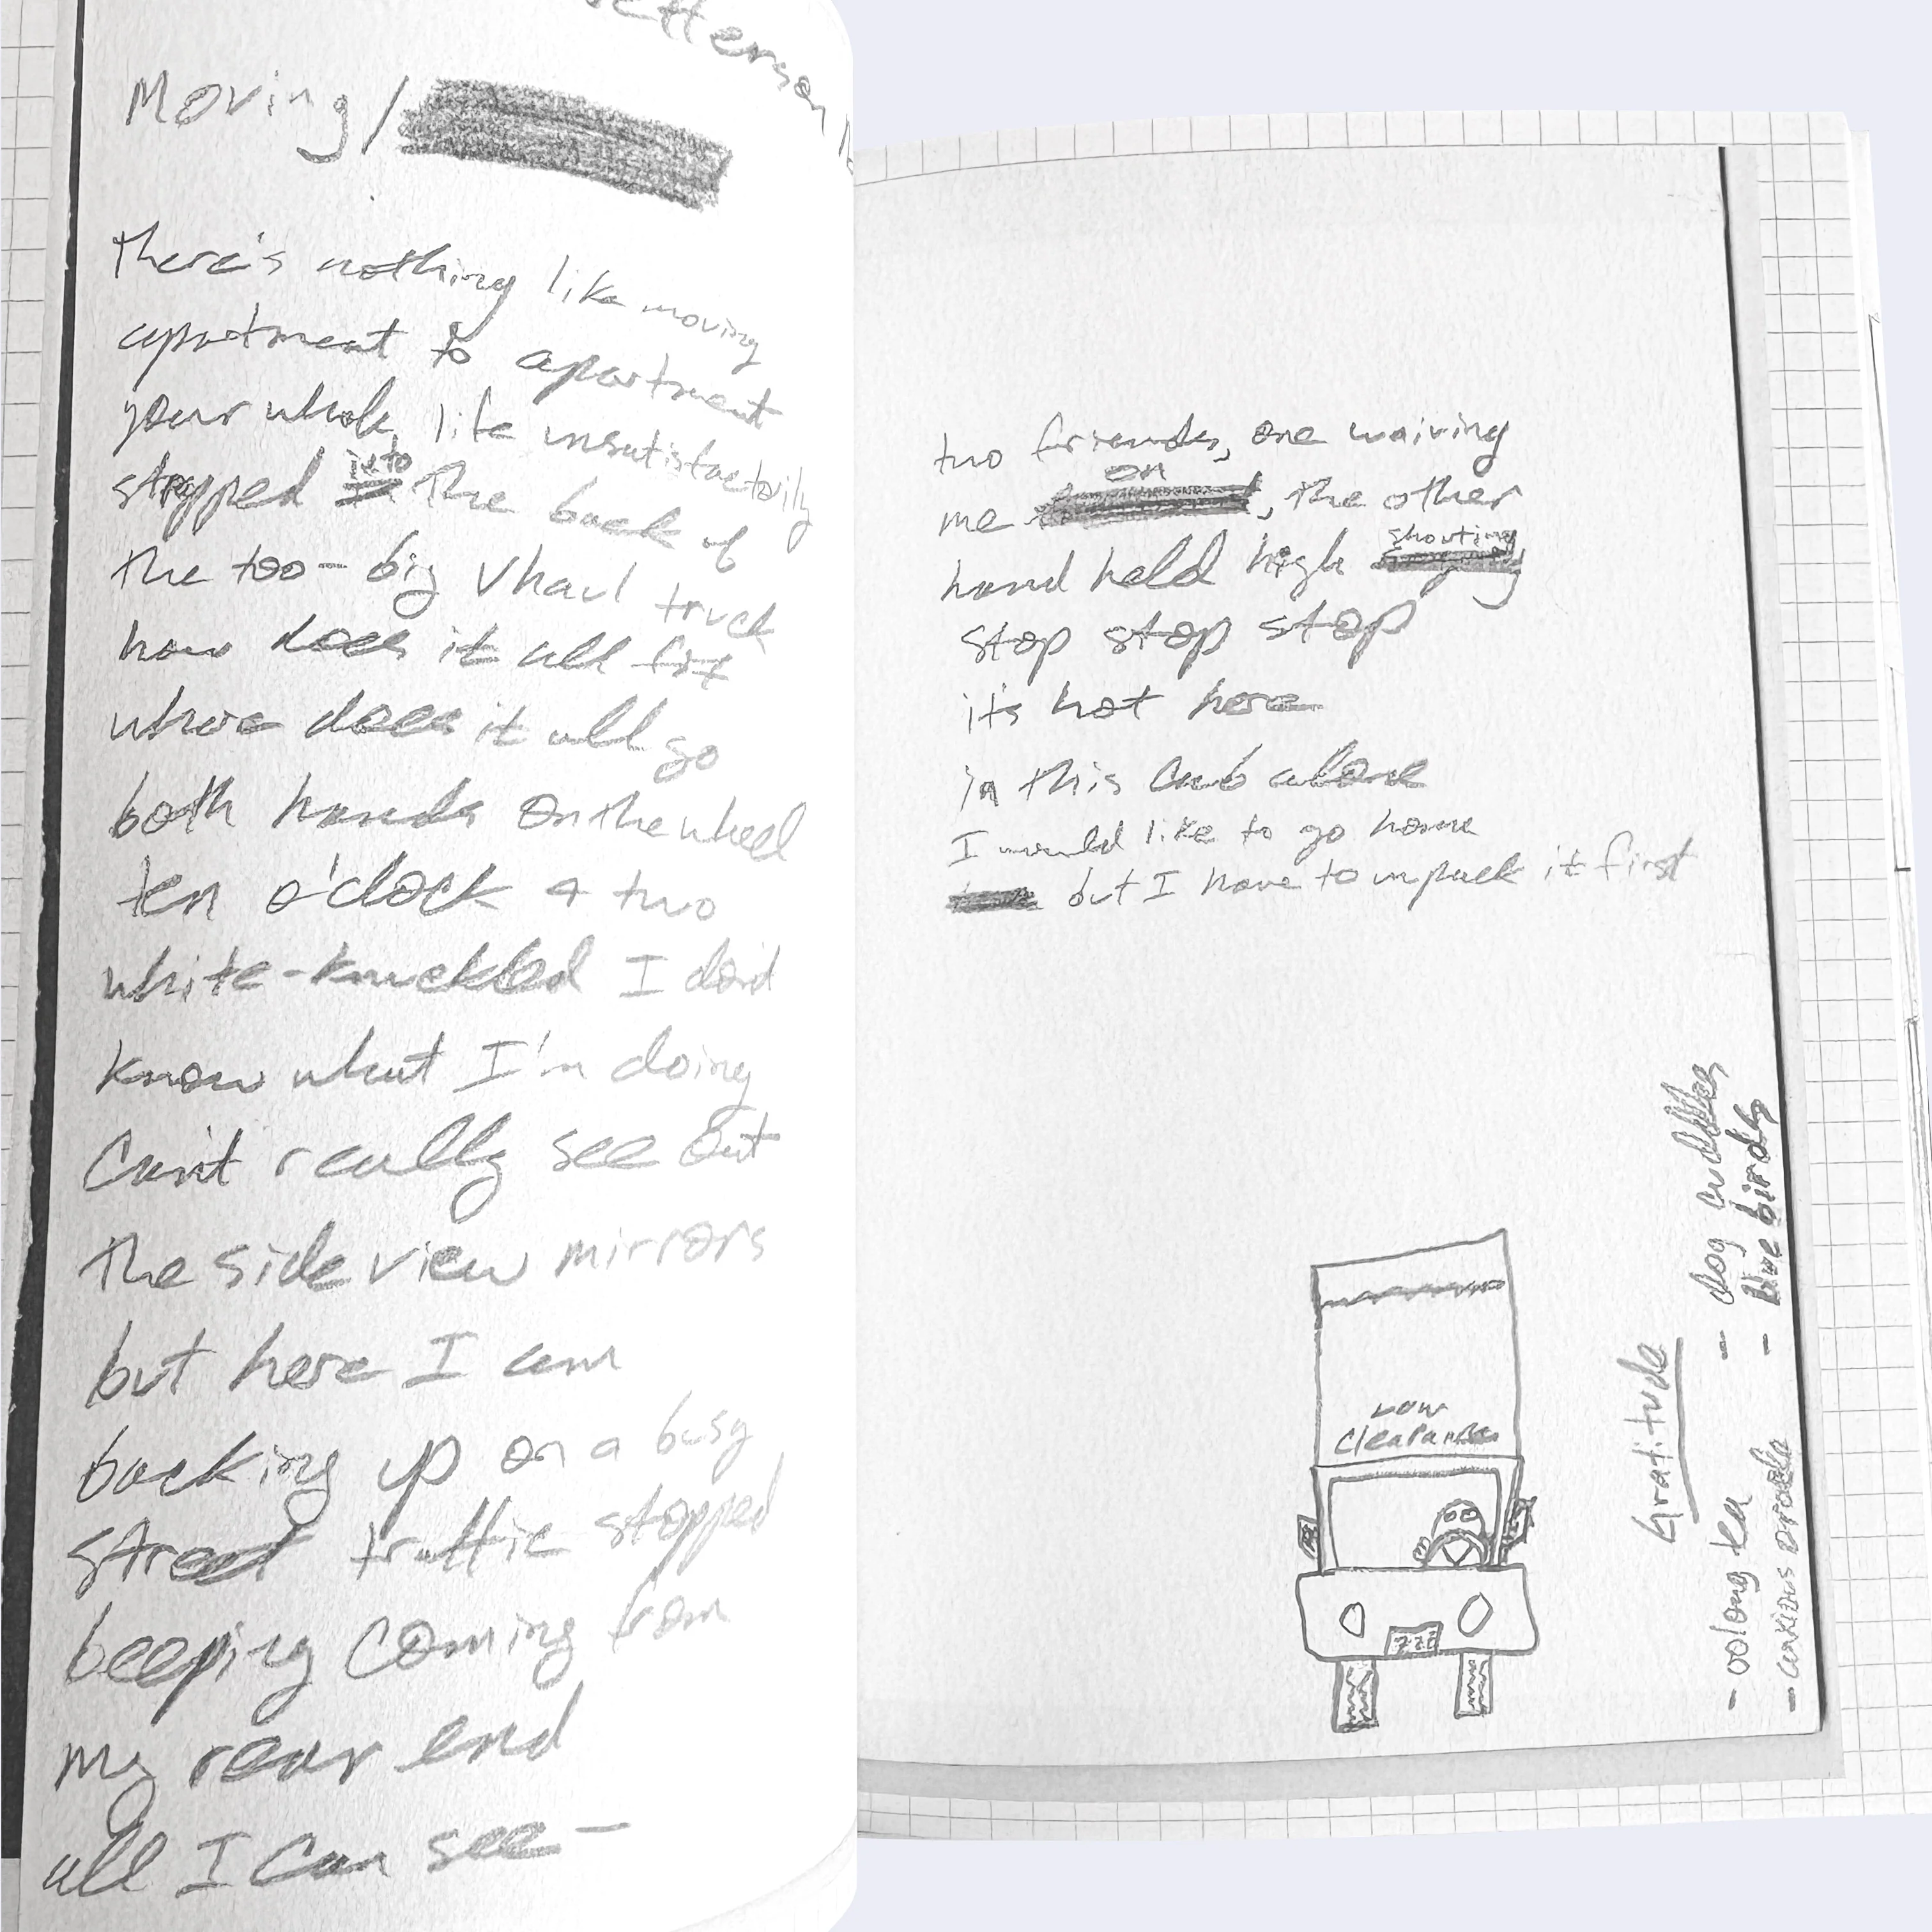 Moving /
There's nothing like moving
apartment to apartment
your whole life unsatisfactorily
into
stopped the back of
the too-big Uhaul truck
how does it all fit
where does it all go
both hands on the wheel
ten o'clock + two
white-knuckled I don't
know what I'm doing
can't really see out
the side view mirrors
but here I am
backing up on a busy
street traffic stopped
beeping coming from
my rear end
all I can see –
two friends, one waiving
on
me , the other
shouting
hand held high
stop stop stop
it's hot here
in this cab alone
I would like to go home
but I have to unpack it first
LOW
clearance
Gratitude
- oolong tea - dog cuddles
- blue birds